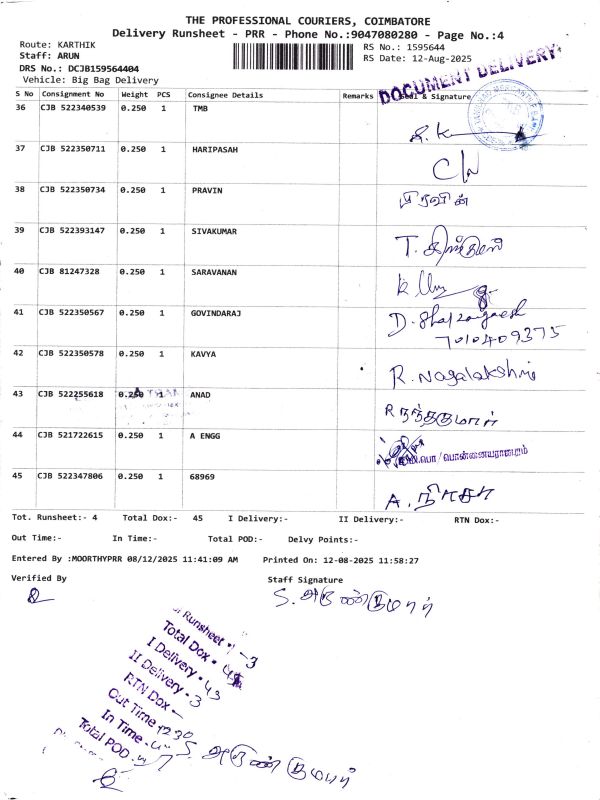 THE PROFESSIONAL COURIERS, COIMBATORE
Delivery Runsheet - PRR - Phone No.:9047080280 - Page No.:4
Route: KARTHIK
RS No.: 1595644
Staff: ARUN
RS Date: 12-Aug-2025
DRS No.: DCJB159564404
Vehicle: Big Bag Delivery
DOCUMENT DELIVERY
S No Consignment No Weight PCS Consignee Details Remarks Seal & Signature
36 CJB 522340539 0.250 1 TMB
37 CJB 522350711 0.250 1 HARIPASAH
38 CJB 522350734 0.250 1 PRAVIN பிரவின்
39 CJB 522393147 0.250 1 SIVAKUMAR
40 CJB 81247328 0.250 1 SARAVANAN
41 CJB 522350567 0.250 1 GOVINDARAJ
7010409375
42 CJB 522350578 0.250 1 KAVYA R. Nagalakshmi
43 CJB 522255618 0.250 1 ANAD R நந்தகுமார்
44 CJB 521722615 0.250 1 A ENGG
45 CJB 522347806 0.250 1 68969 A. நிஷா
Tot. Runsheet:- 4 Total Dox:- 45 I Delivery:- II Delivery:- RTN Dox:-
Out Time:- In Time:- Total POD:- Delvy Points:-
Entered By :MOORTHYPRR 08/12/2025 11:41:09 AM Printed On: 12-08-2025 11:58:27
Verified By Staff Signature
S. அருண்குமார்
Runsheet - 3
Total Dox - 45
I Delivery - 43
II Delivery - 3
RTN Dox -
Out Time 1230
In Time -
Total POD -
S. அருண்குமார்